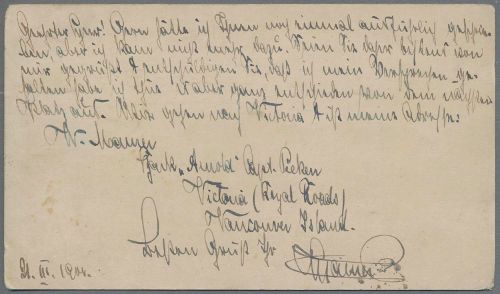 Geehrter Herr! Gern hätte ich Ihnen noch einmal ausführlich geschrie-
ben, aber ich kam nicht mehr dazu. Seien Sie daher bestens von
mir gegrüßt & entschuldigen Sie, daß ich mein Versprechen ge-
halten habe ich thue es aber ganz entschieden von dem nächsten
Platz aus. Wir gehen nach Victoria & ist meine Adresse:
W.
Bark "Arnold" Capt. Picken
Victoria (Royal Roads)
Vancouver Island.
Besten Gruß Ihr
21. III. 1904.